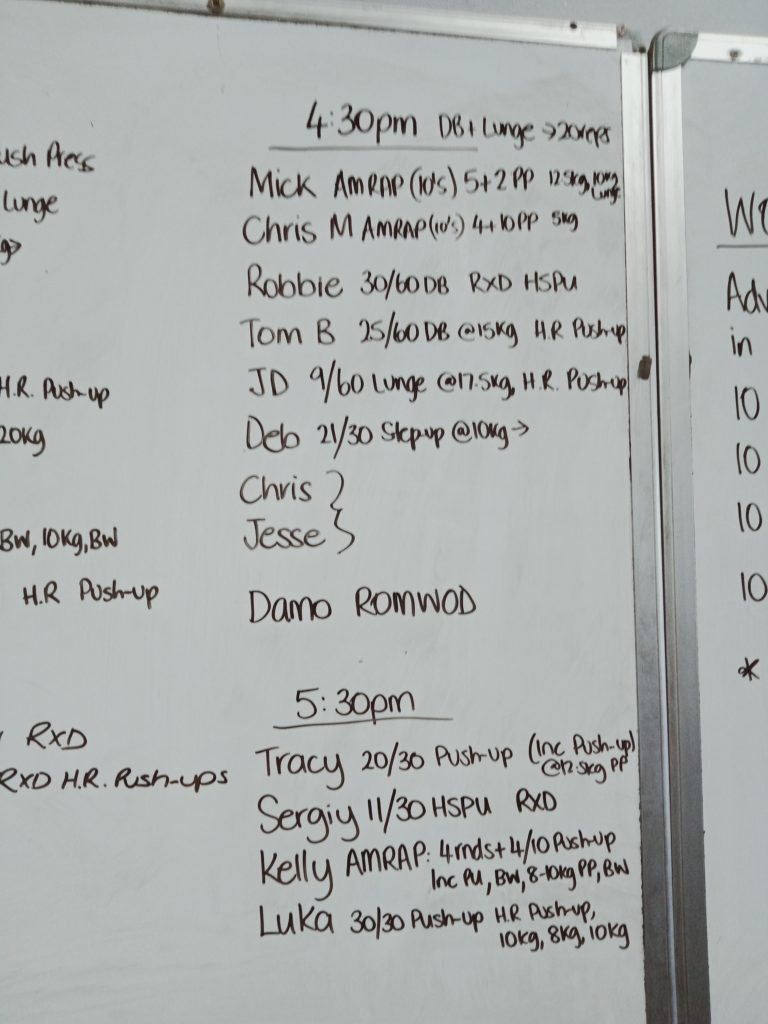 ush Press
Lunge
H.R. Push-up
20kg
BW, 10kg, BW
H.R Push-up
RXD
RXD H.R. Push-ups
4:30pm DB+Lunge → 20reps
Mick AMRAP (10's) 5+2 PP 12.5kg, 10kg Lunge
Chris M AMRAP (10's) 4+10PP 5kg
Robbie 30/60 DB RXD HSPU
Tom B 25/60 DB @15kg H.R Push-up
JD 9/60 Lunge @17.5kg, H.R. Push-up
Deb 21/30 Step-up @10kg →
Chris }
Jesse }
Damo ROMWOD
5:30pm
Tracy 20/30 Push-up (Inc Push-up)
@12.5kg PP
Sergiy 11/30 HSPU RXD
Kelly AMRAP: 4rnds + 4/10 Push-up
Inc PU, BW, 8-10kg PP, BW
Luka 30/30 Push-up H.R Push-up,
10kg, 8kg, 10kg
Adv
in
10
10
10
10
*